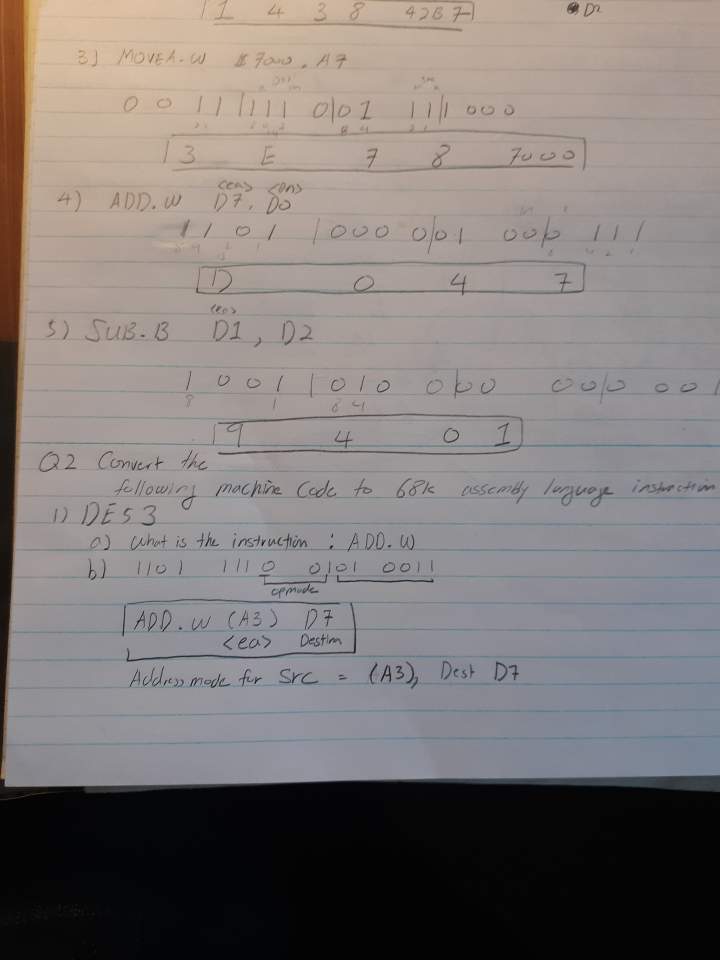 1 4 3 8 42B7
D2
3) MOVEA.W $7000, A7
0 0 1 1 | 1 1 1 0 | 0 1 1 1 1 | 0 0 0
3 E 7 8 7000
<ea> <Dn>
4) ADD.W D7, D0
1 1 0 1 | 0 0 0 0 | 0 1 0 0 0 1 1 1
D 0 4 7
<ea>
5) SUB.B D1, D2
1 0 0 1 | 0 1 0 0 | 0 0 0 0 0 0 0 1
9 4 0 1
Q2 Convert the
following machine code to 68k assembly language instruction
1) DE53
a) What is the instruction : ADD.W
b) 1101 1110 0101 0011
opmode
ADD.W (A3) D7
<ea> Destim
Address mode for Src = (A3), Dest D7